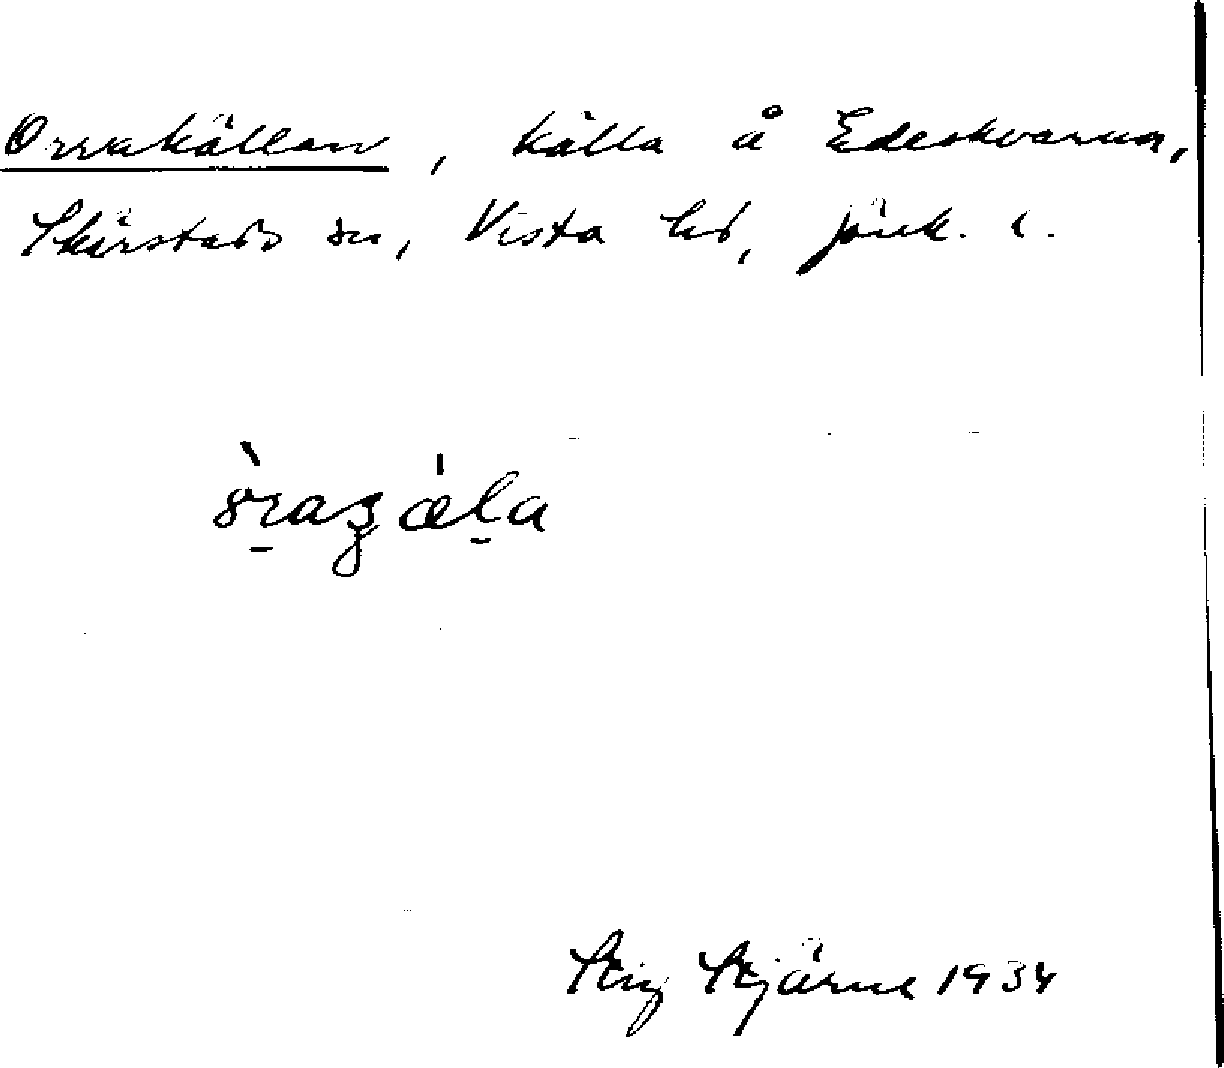 Orrakällan, källa å Edeskvarna,
Skärstads sn, Vista hd, Jönk. l.
Stig Stjärne 1934